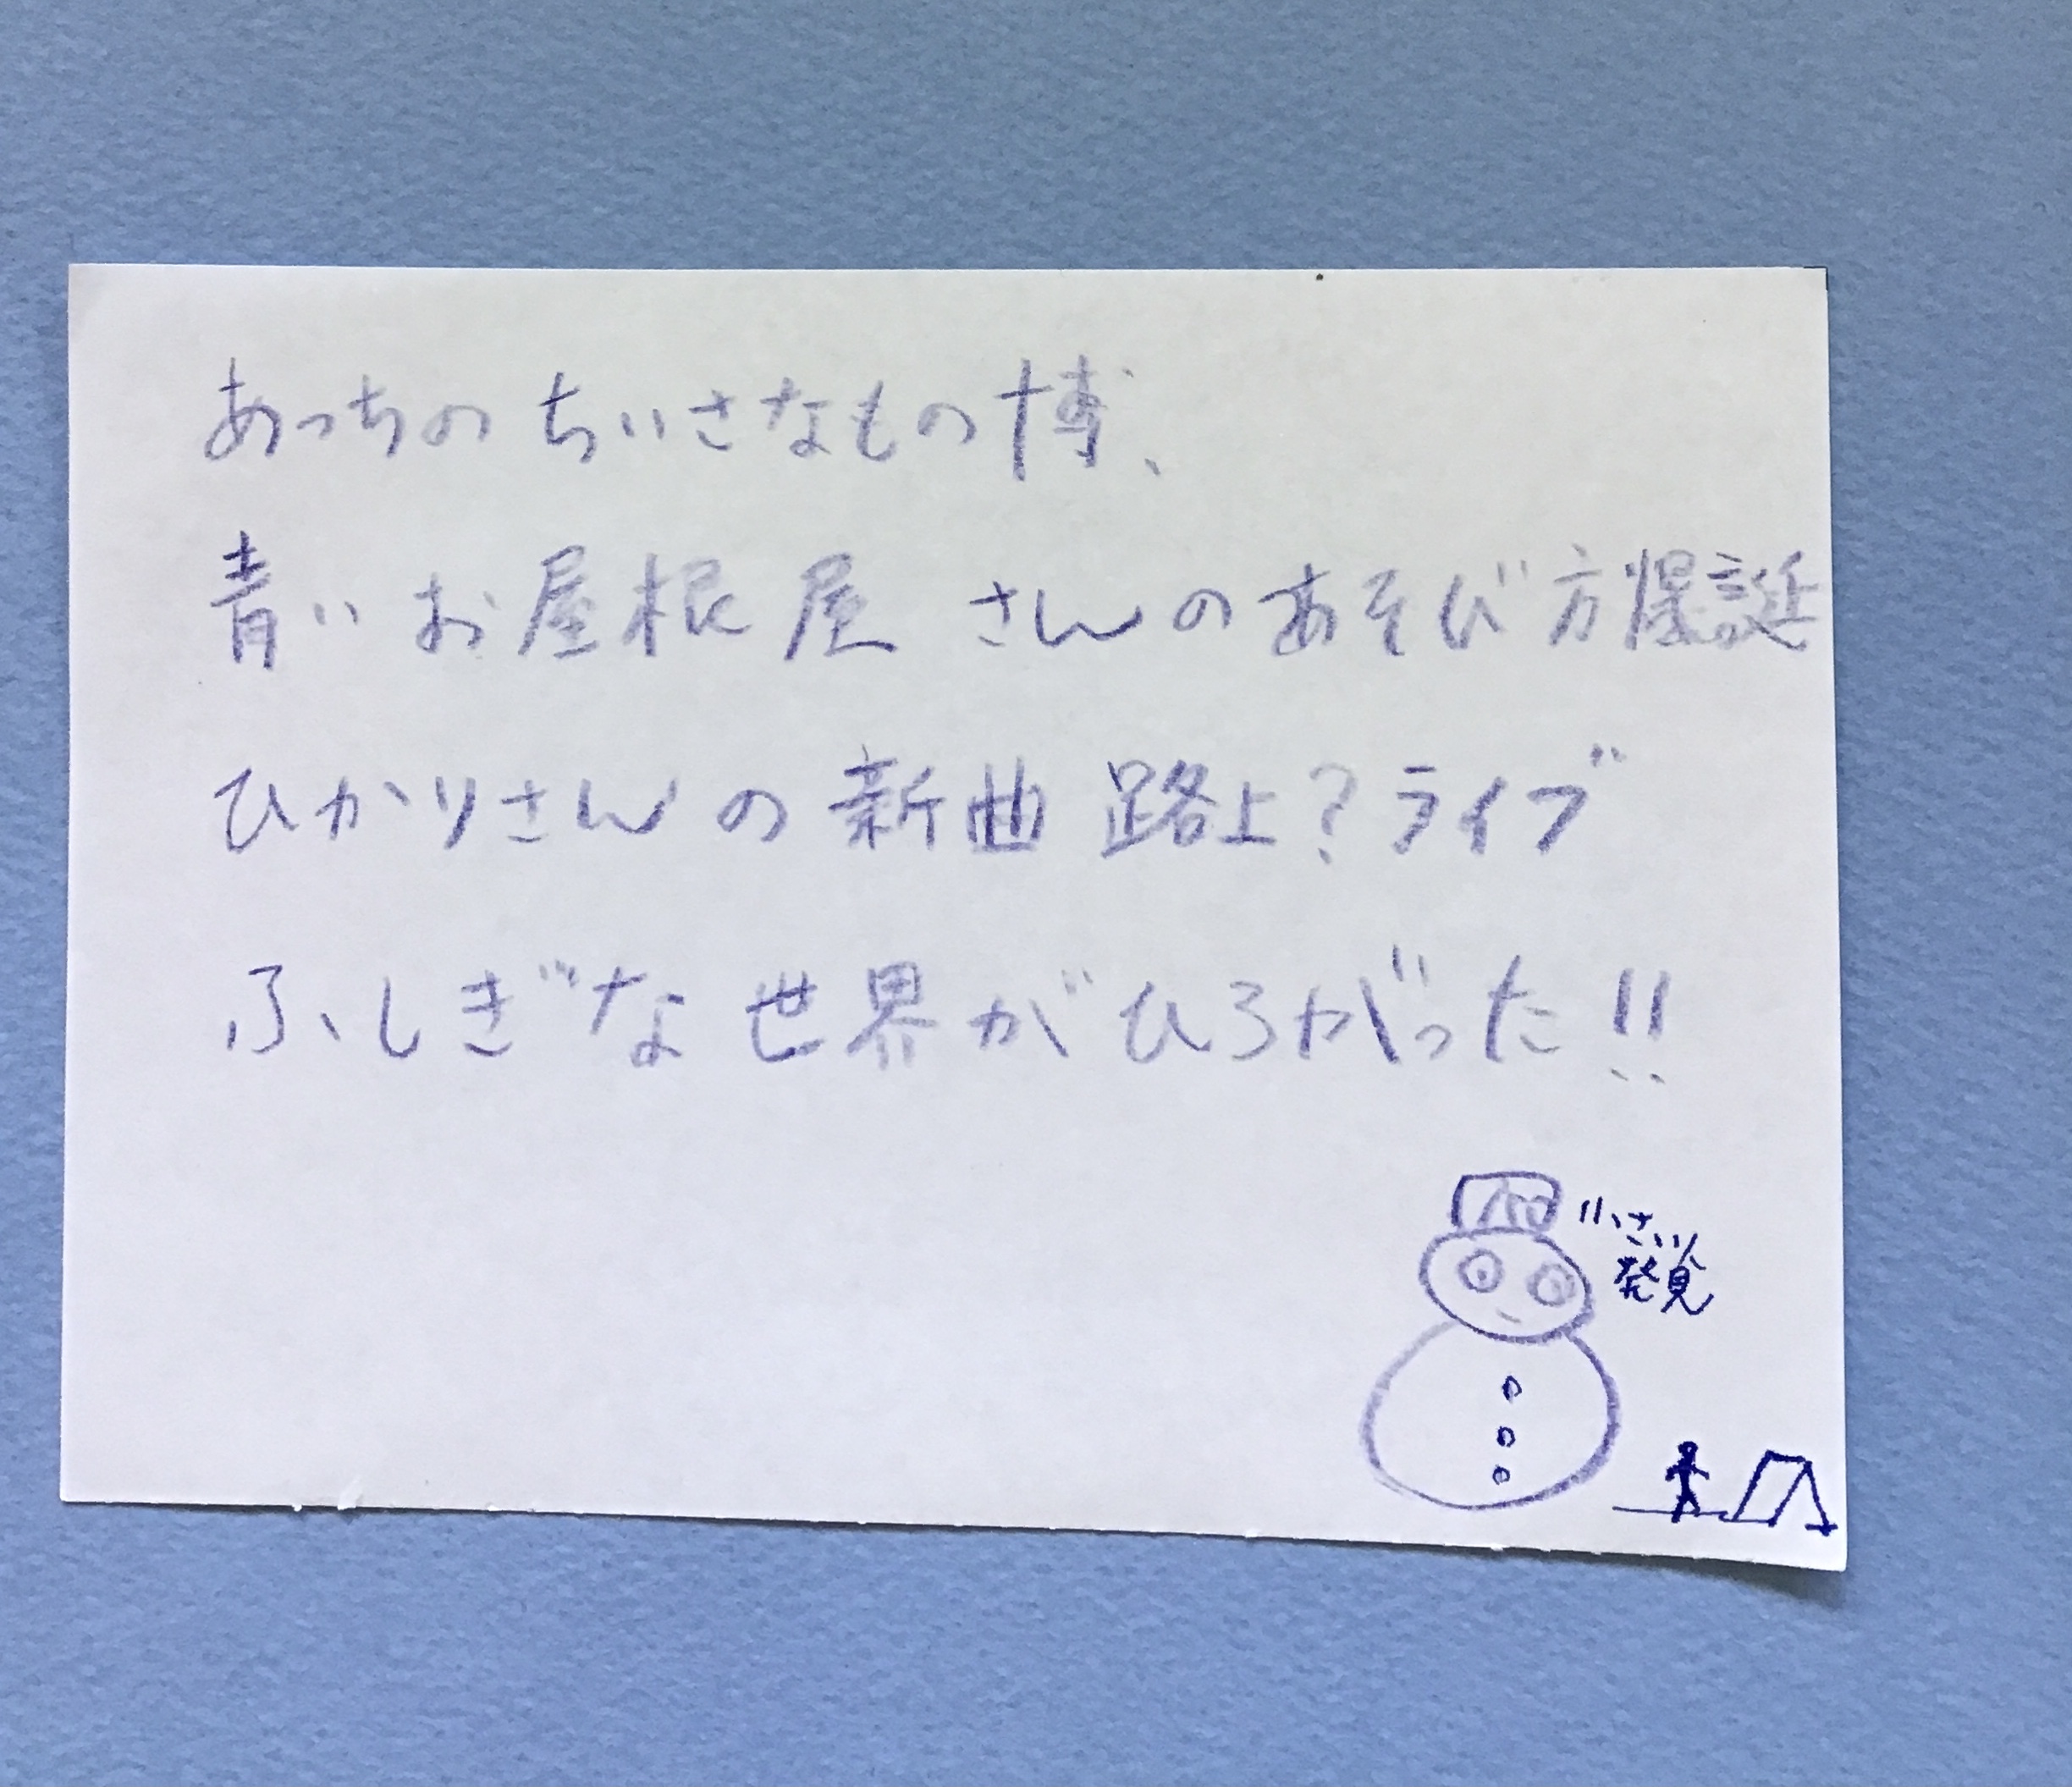 あっちの ちいさなもの博、
青い お屋根屋 さんのあそび方爆誕
ひかりさん の新曲 路上?ライブ
ふしぎな 世界がひろがった!!
小さい
発見